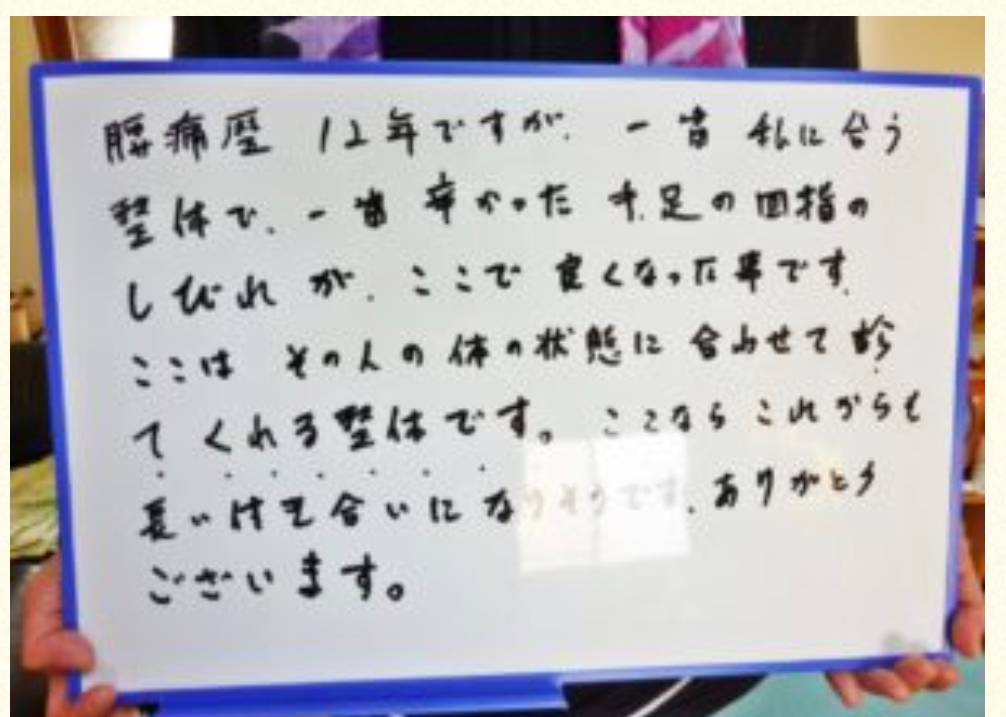 腰痛歴 12年ですが、一番 私に合う
整体で、一番 辛かった 手足の四指の
しびれが、ここで 良くなった事です。
ここは その人の体の状態に 合わせて 診
て くれる整体です。ここなら これからも
長い付き合いに なりそうです。ありがとう
ございます。